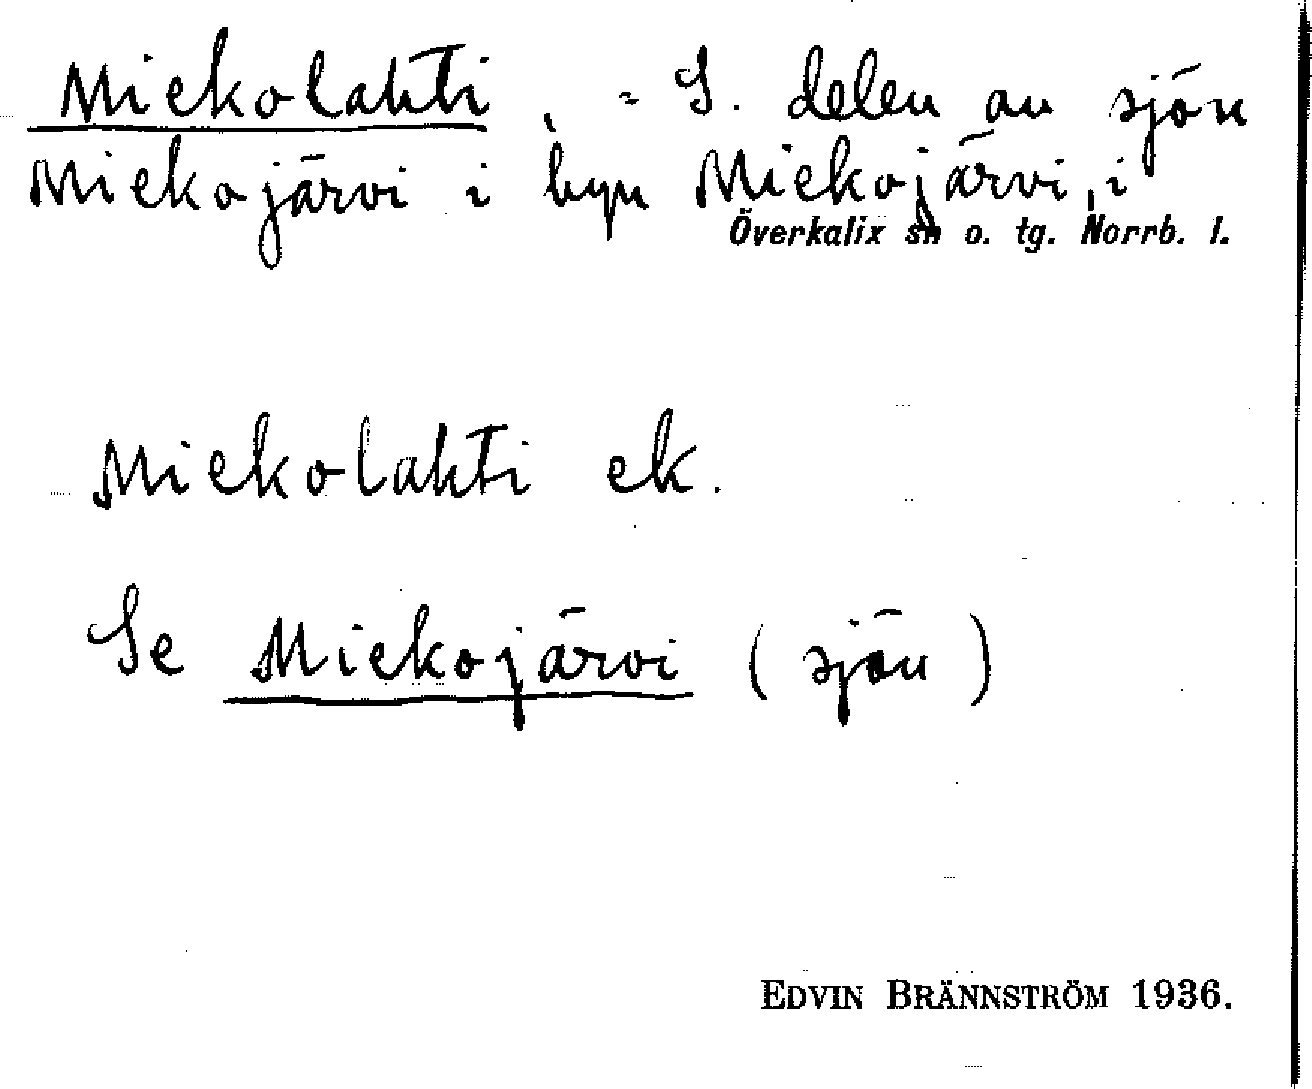 Miekolahti, = S. delen av sjön
Miekojärvi i byn Miekojärvi, i
Överkalix sn o. tg. Norrb. l.
Miekolahti ek.
Se Miekojärvi (sjön)
EDVIN BRÄNNSTRÖM 1936.